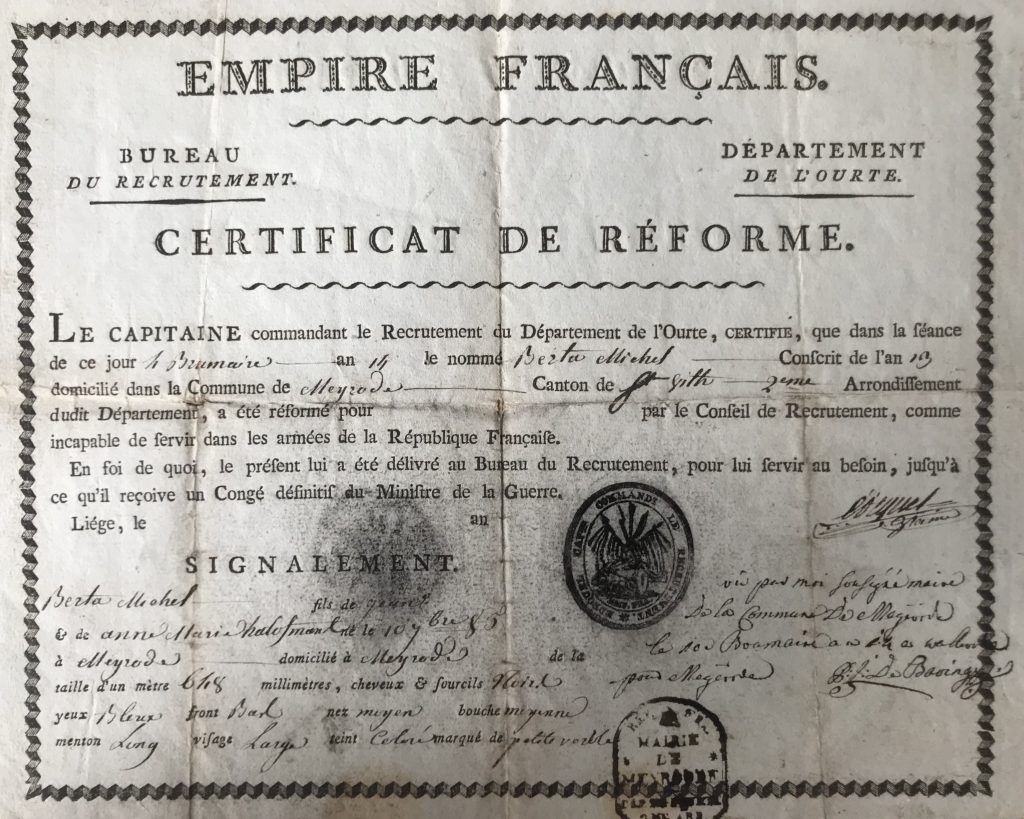 EMPIRE FRANÇAIS.
BUREAU
DU RECRUTEMENT.
DÉPARTEMENT
DE L'OURTE.
CERTIFICAT DE RÉFORME.
LE CAPITAINE commandant le Recrutement du Département de l'Ourte, CERTIFIE, que dans la ſéance
de ce jour 4 Brumaire an 14 le nommé Berta Michel Conſcrit de l'an 13
domicilié dans la Commune de Meyrode Canton de St Vith 2eme Arrondiſſement
dudit Département, a été réformé pour par le Conſeil de Recrutement, comme
incapable de ſervir dans les armées de la République Françaiſe.
En foi de quoi, le préſent lui a été délivré au Bureau du Recrutement, pour lui ſervir au beſoin, juſqu'à
ce qu'il reçoive un Congé définitif du Miniſtre de la Guerre.
Liége, le an
CAPne COMMANDt LE RECRUTEMENT
SIGNALEMENT.
Berta Michel fils de
& de anne Marie né le 10 7bre 85
à Meyrode domicilié à Meyrode de la
taille d'un mètre 648 millimètres, cheveux & ſourcils Noird
yeux Bleux front Bad nez moyen bouche moyenne
menton Long viſage Large teint Coloré marqué de petite vorble
vû par moi Soussigné maire
De la Commune De Megerode
le
pour Megerode
MAIRIE
DE
MEYRODE